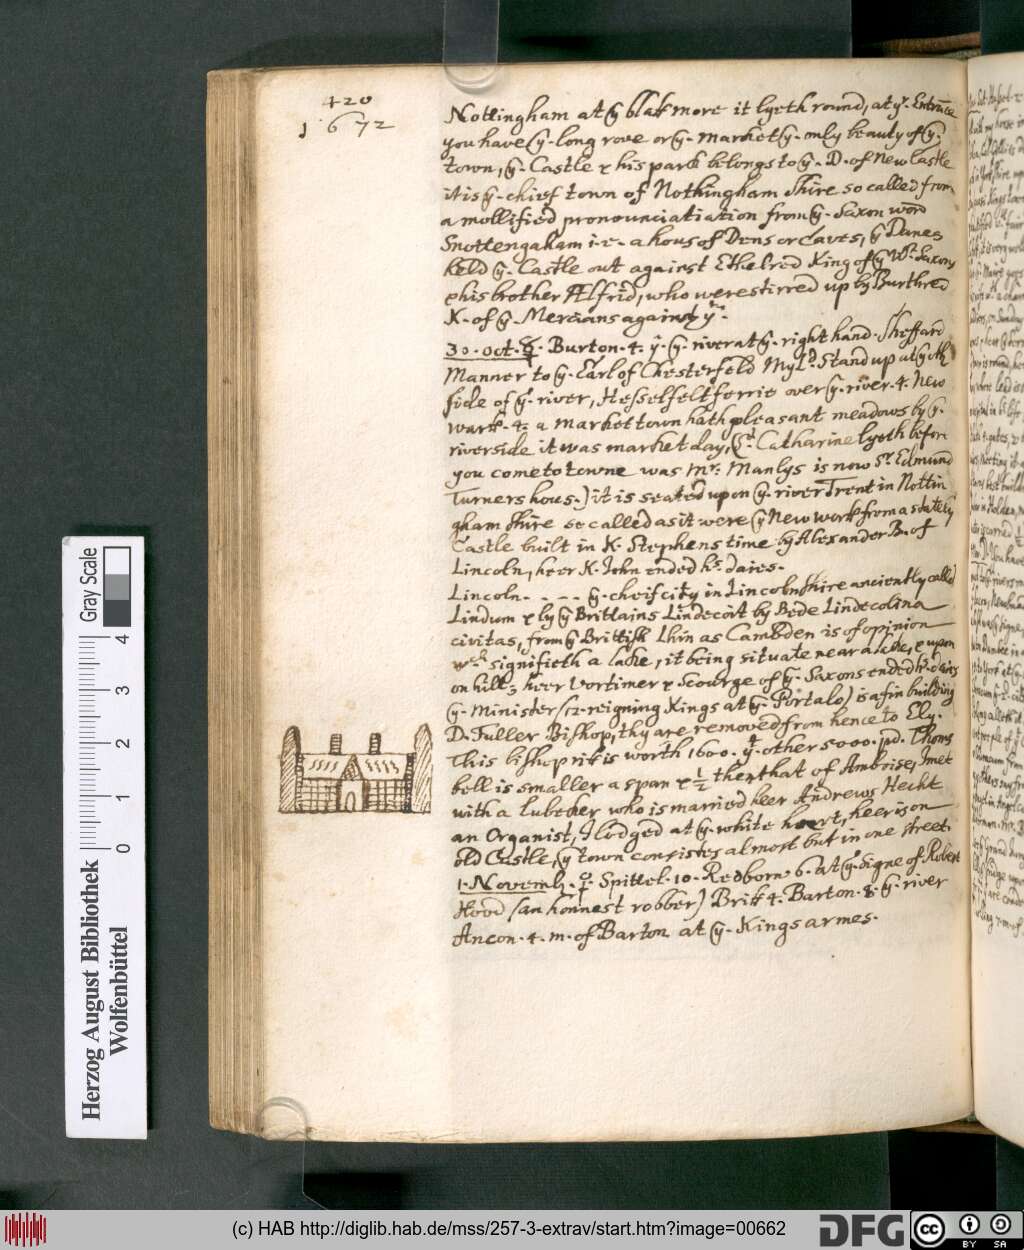 420
1672
Nottingham at yͤ blak more it lyeth round, at yr. Entrance
you have yͤ-long rove or yͤ-market yͤ-only beauty of yͤ-
town, yͤ-Castle & his park belongs to yͤ-D-of New Castle
it is yͤ-chief town of Nothingham shire so called from
a mollified pronounciatiation from yͤ-Saxon word
Snottengaham i-e-a hous of Dens or Caves, yͤ Danes
held yͤ-Castle out against Ethelred King of yͤ Wt-Saxons
& his brother Ælfrid, who were stirred up by Burthred
K-of yͤ-Mercians against yͫ-
30-Oct-☿. Burton-4. yͤ-river at yͤ-right hand-Sheffard
Manner to yͤ-Earl of Chesterfeld My Ld. Stand up at yͤ oth
side of yͤ-river, Hesselfelt ferrie over yͤ-river-4. New
wark-4: a market town hath pleasant meadows by yͤ-
riverside it was market day, St. Catharine lyeth before
you come to towne was Mr: Manlys is now Sr. Edmund
Turners hous.) it is seated upon yͤ-river Trent in Nottin
gham shire so called as it were yͤ New work from a stately
Castle built in K-Stephens time by Alexander B-of
Lincoln, heer K-John ended hs. daies-
Lincoln- - - - yͤ-cheif city in Lincolnshire anciently called
Lindum & by yͤ Brittains Lindecoit by Bede Lindecolina
civitas, from yͤ Brittish Lhin as Cambden is of opinion
wch signifieth a lake, it being situate near a lake, & upon
on hill; heer Vortimer & Scourge of yͤ-Saxons ended hs. daies
yͤ-Minister (12-reigning Kings at yͤ-Portalo) is a fin building
D-Fuller Bishop, thy are removed from hence to Ely.
This bishoprik is worth 1600. yt-other 5000-pd. Thoms
bell is smaller a span & ½ then that of Amboise, I met
with a lubecker who is married heer Andrews Hecht
an Organist, I lodged at yͤ-white heart, heer is on
old Castle, yͤ town consistes almost but in one street
1-Novemb. ♀ Spittel-10-Redborn-6-at yͤ Signe of Robert
Hood (an honnest robber) Brik 4. Barton-8-yͤ-river
Ancon-4-m-of Barton at yͤ-Kings armes-
Gray Scale
0 1 2 3 4
Herzog August Bibliothek
Wolfenbüttel
(c) HAB http://diglib.hab.de/mss/257-3-extrav/start.htm?image=00662
DFG
cc
BY SA